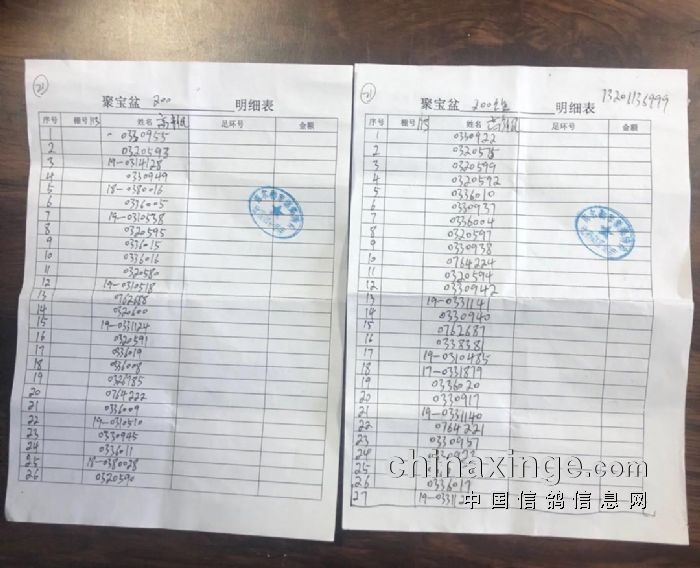 21
聚宝盆 200 明细表
序号 棚号 113 姓名 足环号 金额
1 0330955
2 0320593
3 19-0314128
4 0330949
5 18-0380016
6 0336005
7 19-0310538
8 0320595
9 0336015
10 0336016
11 0320580
12 19-0310518
13 0762688
14 0320600
15 19-0331124
16 0320591
17 0336019
18 0336008
19 0326985
20 0764222
21 0336009
22 19-0310510
23 0330945
24 0336011
25 18-0380028
26 0320590
21
聚宝盆 200 明细表 13201136999
序号 棚号 113 姓名 足环号 金额
1 0330922
2 0320575
3 0320599
4 0320592
5 0336010
6 0330937
7 0336004
8 0320597
9 0330938
10 0764224
11 0320594
12 0330942
13 19-0331141
14 0330940
15 0762687
16 0338381
17 19-0310485
18 17-0331879
19 0336020
20 0330917
21 19-0331140
22 0764221
23 0330957
24
25
26 0336017
27
chinaxinge.com
中国信鸽信息网